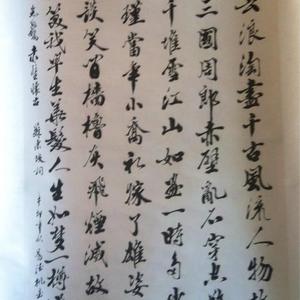 去浪淘盡千古風流人物
三國周郎赤壁亂石穿空
千堆雪江山如畫一時多少
瑾當年小喬初嫁了雄姿
談笑間檣櫓灰飛煙滅故
笑我早生華髮人生如夢一樽
赤壁懷古 蘇東坡詞 辛卯年秋